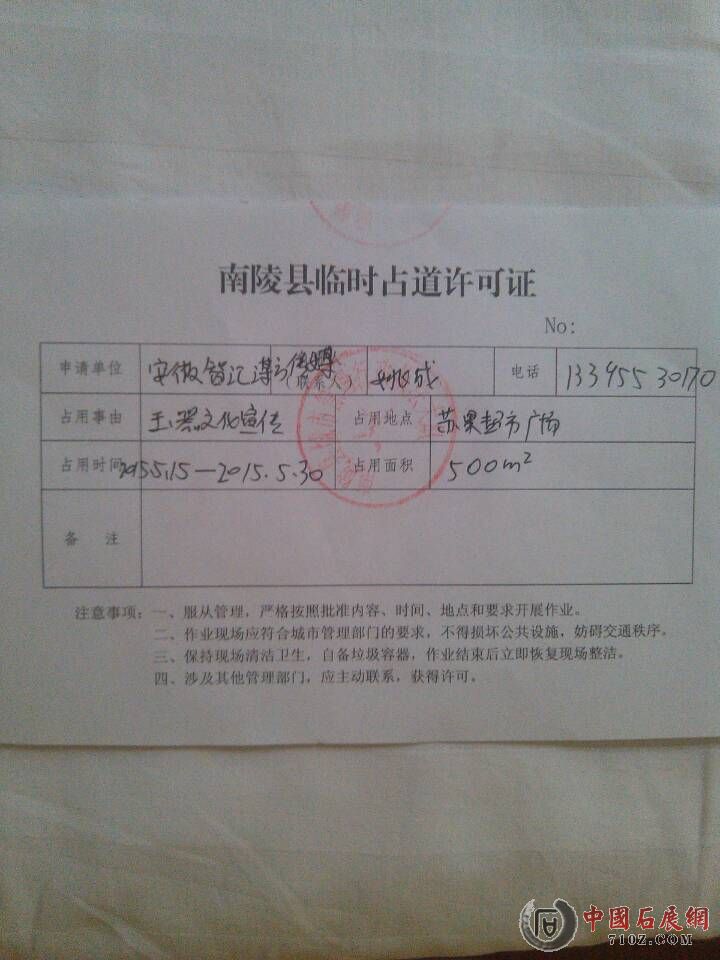 南陵县临时占道许可证
No:
申请单位 安徽智汇谋行传媒 (联系人) 姚成 电话 13395530170
占用事由 玉器文化宣传 占用地点 苏果超市广场
占用时间 2015.5.15—2015.5.30 占用面积 500m²
备 注
注意事项：一、服从管理，严格按照批准内容、时间、地点和要求开展作业。
二、作业现场应符合城市管理部门的要求，不得损坏公共设施，妨碍交通秩序。
三、保持现场清洁卫生，自备垃圾容器，作业结束后立即恢复现场整洁。
四、涉及其他管理部门，应主动联系，获得许可。
中國石展網
710Z.COM